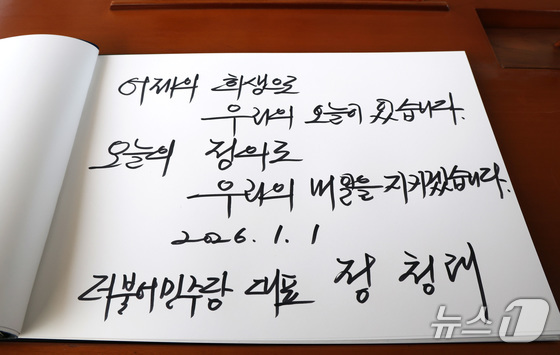 어제의 희생으로
우리의 오늘이 있습니다.
오늘의 정의로
우리의 내일을 지키겠습니다.
2026. 1. 1
더불어민주당 대표 정청래
뉴스1